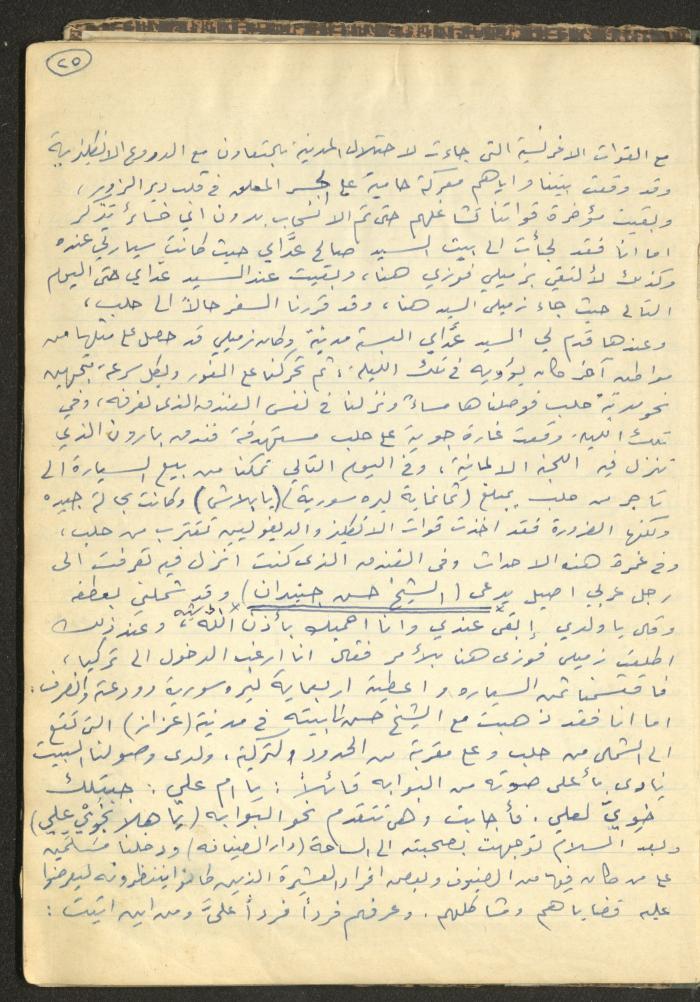 ٢٥
مع القوات الافرنسية التي جاءت لاحتلال المدينة بالتعاون مع الدروع الانكليزية
وقد وقعت بيننا واياهم معركة حامية على الجسر المعلق في قلب دير الزور،
وبقيت مؤخرة قواتنا تشاغلهم حتى تم الانسحاب بدون اي خسائر تذكر
اما انا فقد لجأت الى بيت السيد صالح عدّاي حيث كانت سيارتي عنده
وكذلك لألتقي بزميلي فوزي هنا، وبقيت عند السيد عداي حتى اليوم
التالي حيث جاء زميلي السيد هنا، وقد قررنا السفر حالاً الى حلب،
وعندها قدم لي السيد عدّاي البسة مدنية وكان زميلي قد حصل على مثلها من
مواطن آخر كان يؤويه في تلك الليلة، ثم تحركنا على الفور وبكل سرعة متجهين
نحو مدينة حلب فوصلناها مساءً ونزلنا في نفس الفندق الذي نعرفه، وفي
تلك الليلة وقعت غارة جوية على حلب مستهدفة فندق بارون الذي
تنزل فيه اللجنة الالمانية، وفي اليوم التالي تمكنا من بيع السيارة الى
تاجر من حلب بمبلغ (ثمانماية ليره سورية) (يا بلاش) وكانت بحالة جيده
ولكنها الضرورة فقد اخذت قوات الانكليز والديغوليين تقترب من حلب،
وفي غمرة هذه الاحداث وفي الفندق الذي كنت انزل فيه تعرفت الى
رجل عربي اصيل يدعى (الشيخ حسن جنيدان) وقد شملني بعطفه
وقال يا ولدي إبقى عندي وانا احميك بأذن الله، وعند ذلك
اطلعت زميلي فوزي هنا بالأمر فقال انا ارغب الدخول الى تركيا،
فاقتسمنا ثمن السياره واعطيته اربعماية ليره سورية وودعته وانصرف.
اما انا فقد ذهبت مع الشيخ حسن لبيته في مدينة (عزاز) التي تقع
الى الشمال من حلب وعلى مقربة من الحدود التركية، ولدى وصولنا البيت
نادى بأعلى صوته من البوابه قائلاً: يا ام علي: جبتلك
خويّ لعلي. فأجابت وهي تتقدم نحو البوابه (يا هلا بخويْ علي)
وبعد السلام توجهت بصحبته الى الساحة (دار الضيافه) ودخلنا مسلّمين
على من كان فيها من الضيوف وبعض افراد العشيرة الذين كانوا ينتظرونه ليعرضوا
عليه قضاياهم ومشاكلهم. وعرفهم فرداً فرداً عليّ ومن اين اتيت: